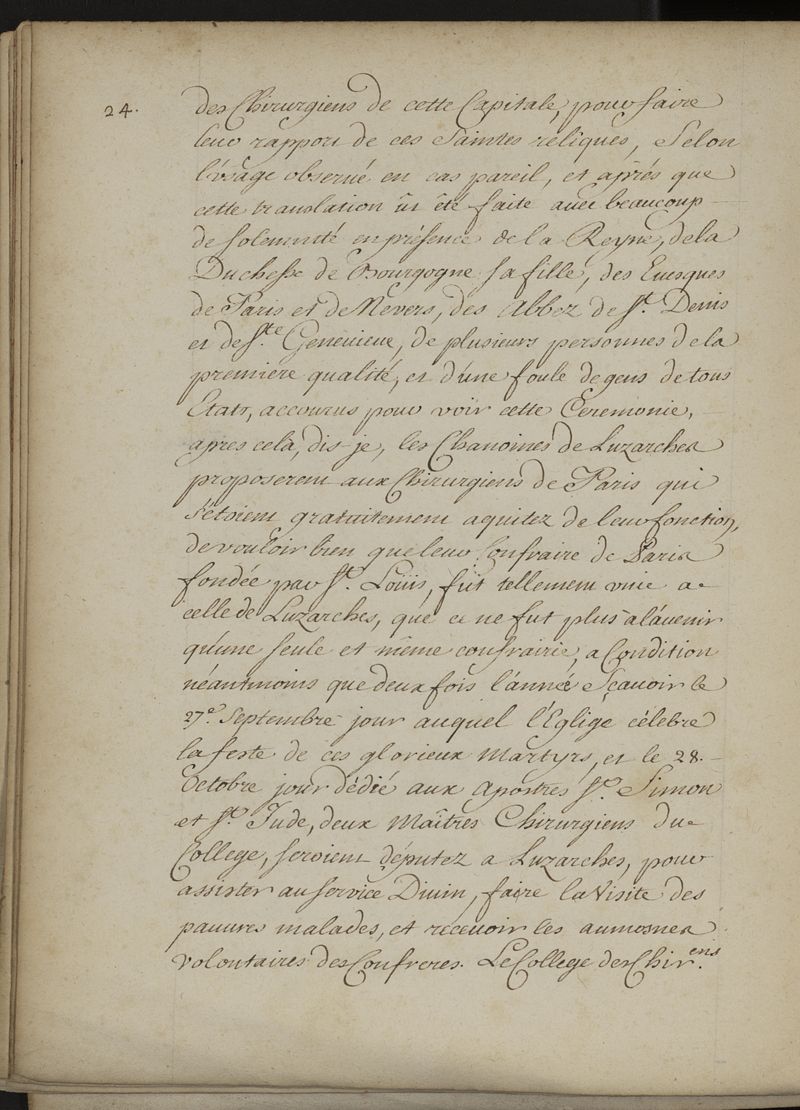 24.
des Chirurgiens de cette Capitale, pour faire
leur rapport de ces Saintes reliques, Selon
l'vsage obserué en cas pareil, et aprés que
cette translation ût êté faite auec beaucoup
de solemnité en présence de la Reyne, de la
Duchesse de Bourgogne sa fille, des Euesques
de Paris et de Nevers, des Abbez de St. Denis
et de Ste. Geneuieue, de plusieurs personnes de la
premiere qualité, et d'une foule de gens de tous
Etats, accourus pour voir cette Ceremonie,
apres cela, dis-je, les Chanoines de Luzarches
proposerent aux Chirurgiens de Paris qui
s'étoient gratuitement aquitez de leur fonction,
de vouloir bien que leur Confrairie de Paris
fondée par St. Loüis, fût tellement vnie a
celle de Luzarches, que ce ne fut plus a l'áuenir
qu'une seule et même confrairie, a Condition
néantmoins que deux fois l'année Sçauoir le
27e. Septembre jour auquel l'Eglise célebre
la feste de ces glorieux Martyrs, et le 28.
Octobre jour dédié aux Apostres St. Simon
et St. Jude, deux Maîtres Chirurgiens du
College, seroient députez a Luzarches, pour
assister au service Diuin, faire la Visite des
pauures malades, et receuoir les aumosnes
volontaires des Confreres. Le College des Chirens.